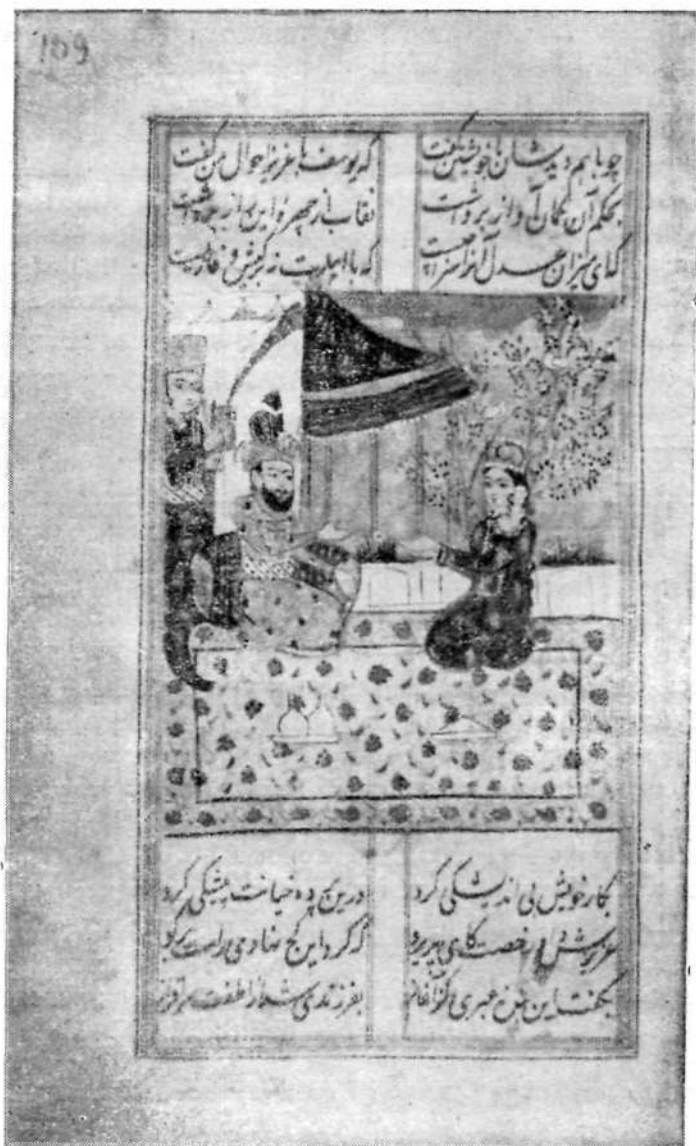 109
چو با هم دیدشان با خویشتن گفت که یوسف با عزیز احوال من گفت
بحکم آن گمان آواز برداشت نقاب از چهرهٔ این راز برداشت
کای میزان عدل آنرا سزا چیست که با اهلت نه بر کیش وفا زیست
بکار خویش بی اندیشگی کرد درین پرده خیانت پیشگی کرد
عزیزش داد رخصت کای پریرو که کرد این کج نهادی راست برگو
بگفت این بندهٔ عبری کز آغاز بفرزندی شد از لطفت سرافراز